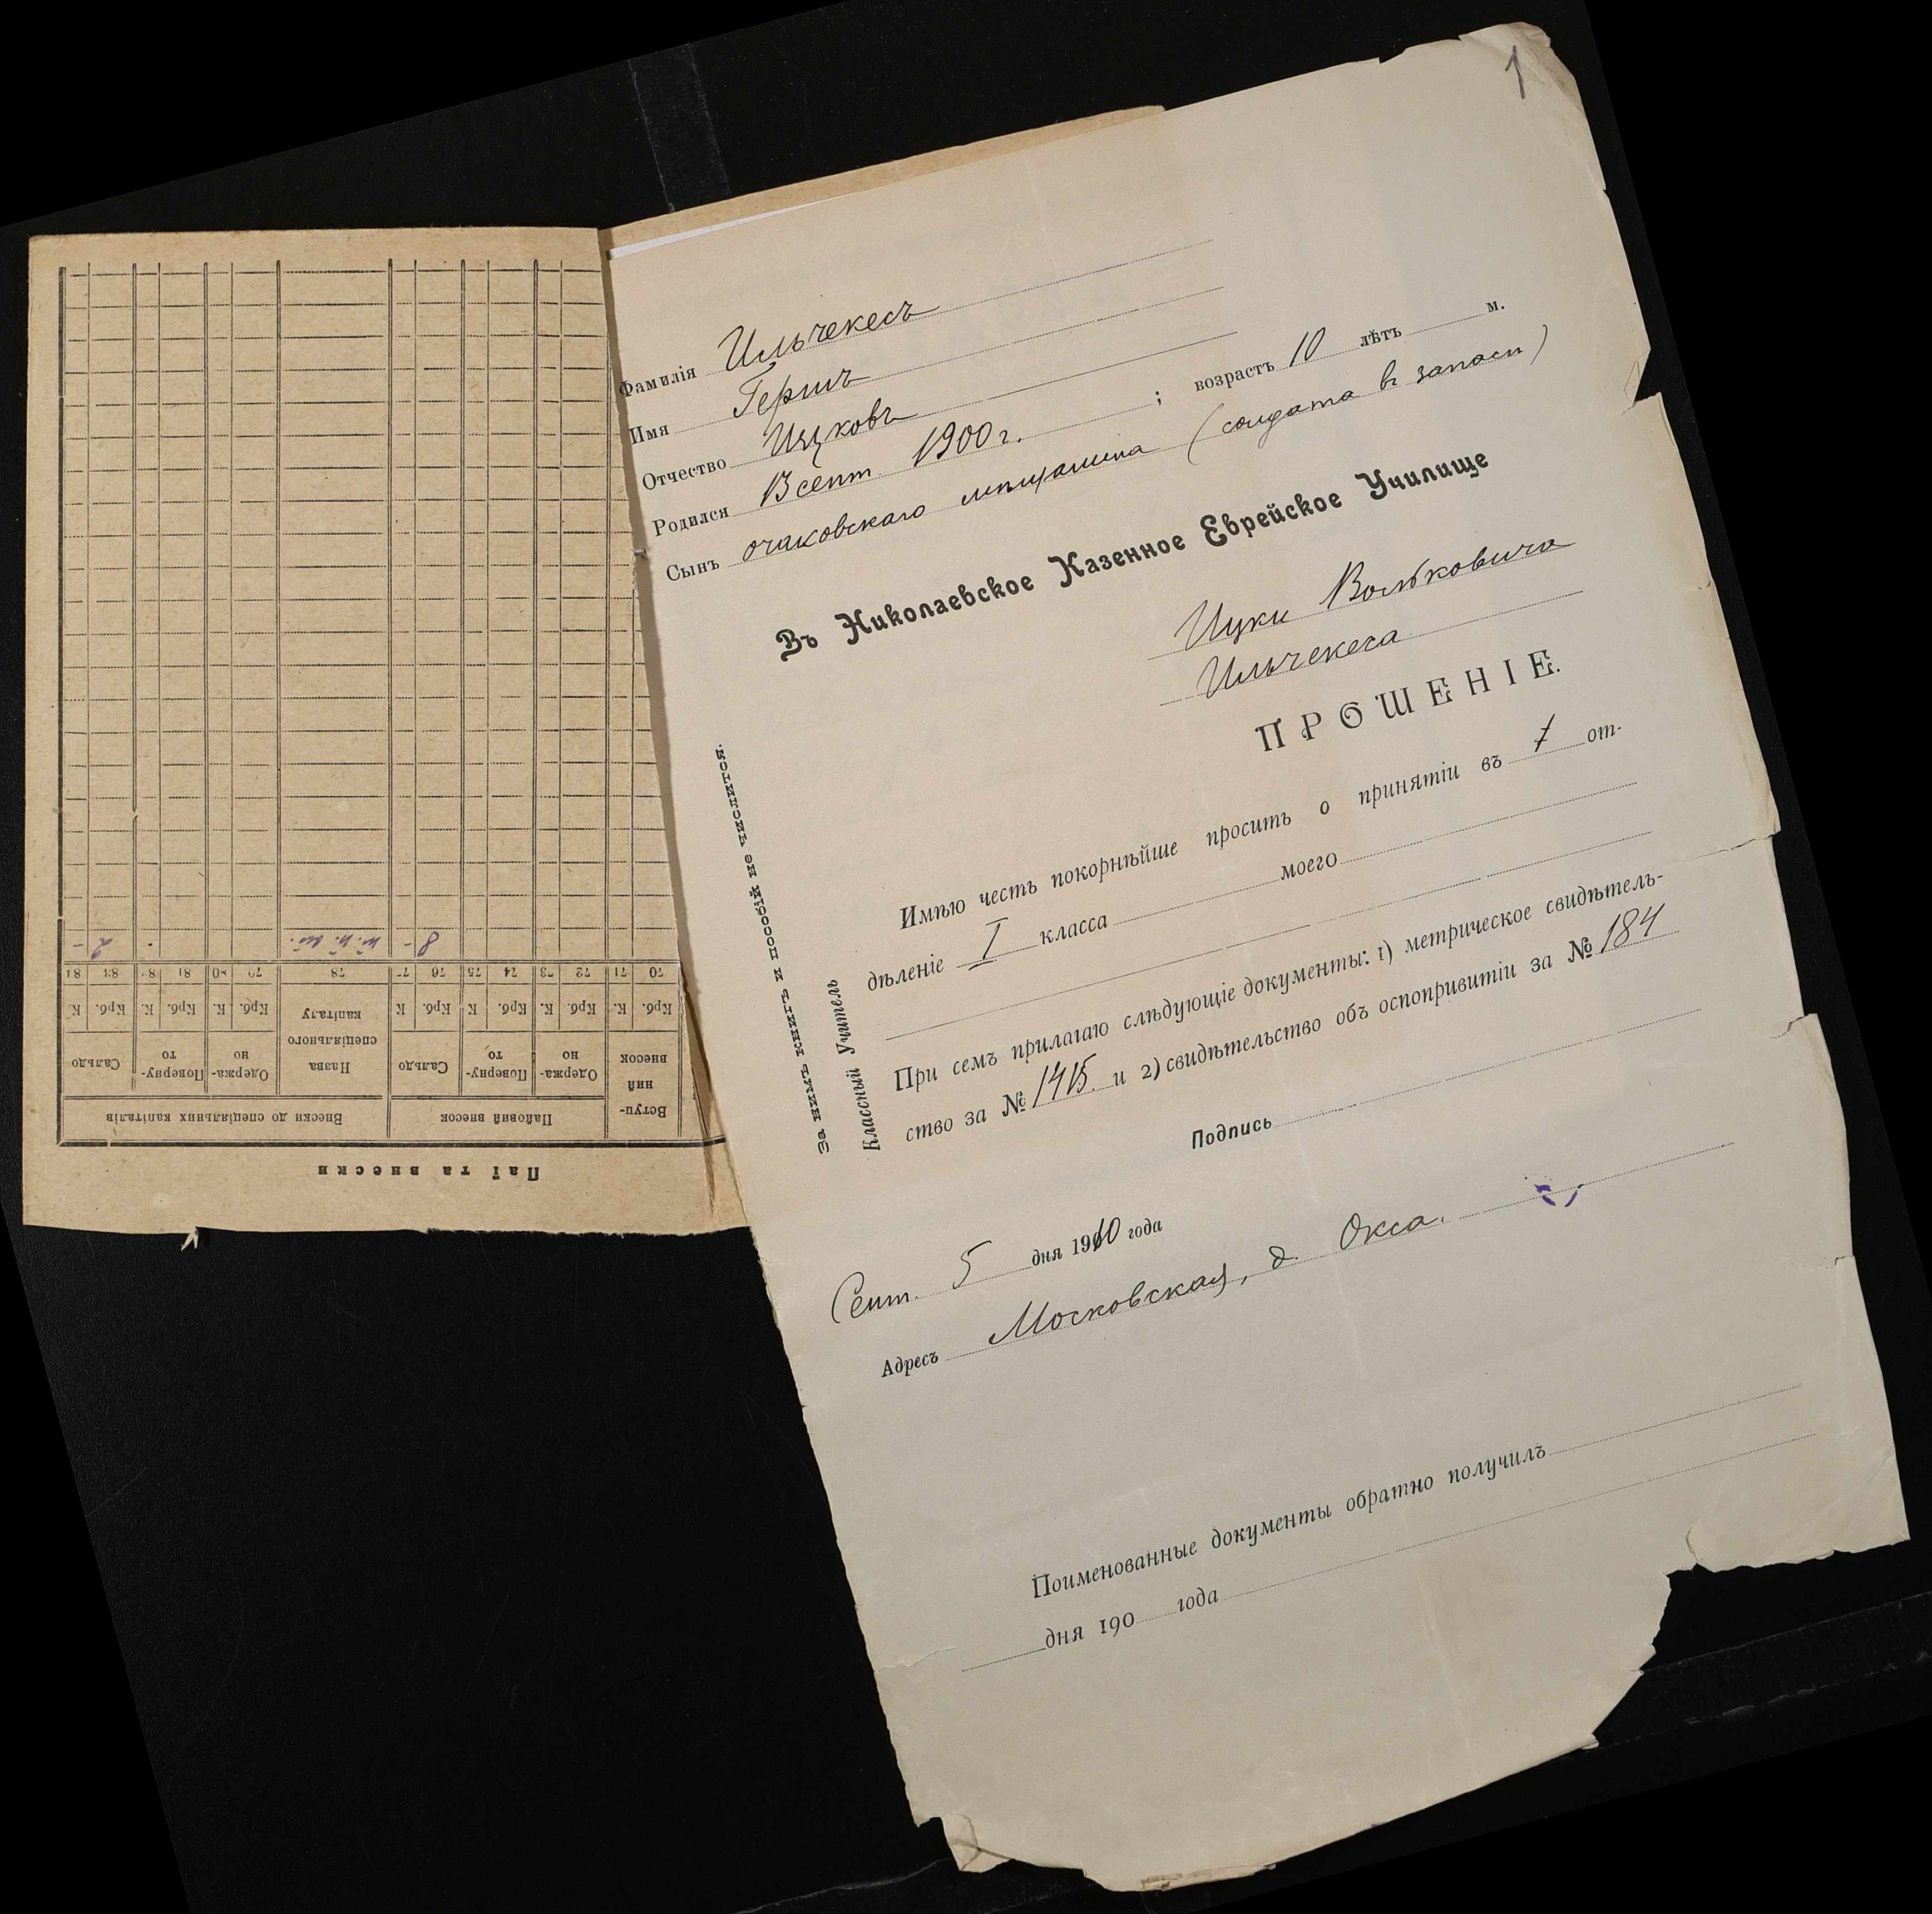 1
Фамилія Ильчекесъ
Имя Гершъ
Отчество Ицковъ
Родился 13 сент. 1900 г. ; возрастъ 10 лѣтъ м.
Сынъ очаковскаго мѣщанина (солдата въ запасѣ)
Въ Николаевское Казенное Еврейское Училище
Ицки Вольковича
Ильчекеса
ПРОШЕНІЕ.
Имѣю честь покорнѣйше просить о принятіи въ 1 от-
дѣленіе I класса моего
При семъ прилагаю слѣдующіе документы: 1) метрическое свидѣтель-
ство за № 1415. и 2) свидѣтельство объ оспопривитіи за № 184
Подпись
Сент. 5 дня 1910 года
Адресъ Московская, д. Окса.
Поименованные документы обратно получилъ
дня 190 года
За нимъ книгъ и пособій не числится.
Классный Учитель
Паї та внески
Вступ-
ний
внесок
Пайовий внесок
Внески до спеціяльних капіталів
Одержа-
но
Поверну-
то
Сальдо
Назва
спеціяльного
капіталу
Одержа-
но
Поверну-
то
Сальдо
Крб. К. Крб. К. Крб. К Крб. К Крб. К. Крб. К. Крб. К
70 71 72 73 74 75 76 77 78 79 80 81 82 83 84
8 - 2 -